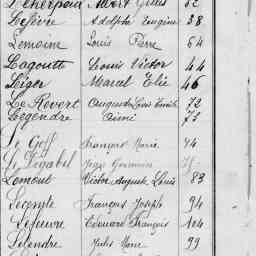 Albert Gilles 32
Lefèvre Adolphe Eugène 38
Lemoine Louis Pierre 64
Lagoutte Louis Victor 44
Léger Marcel Elie 46
Le Révert Auguste Louis Emile 72
Legendre Aimé 73
Le Goff François Marie 74
Jean Germain
Lemont Victor Auguste Louis 83
Lecomte François Joseph 94
Lefeuvre Edouard François 104
Lelendre Jules Marie 99